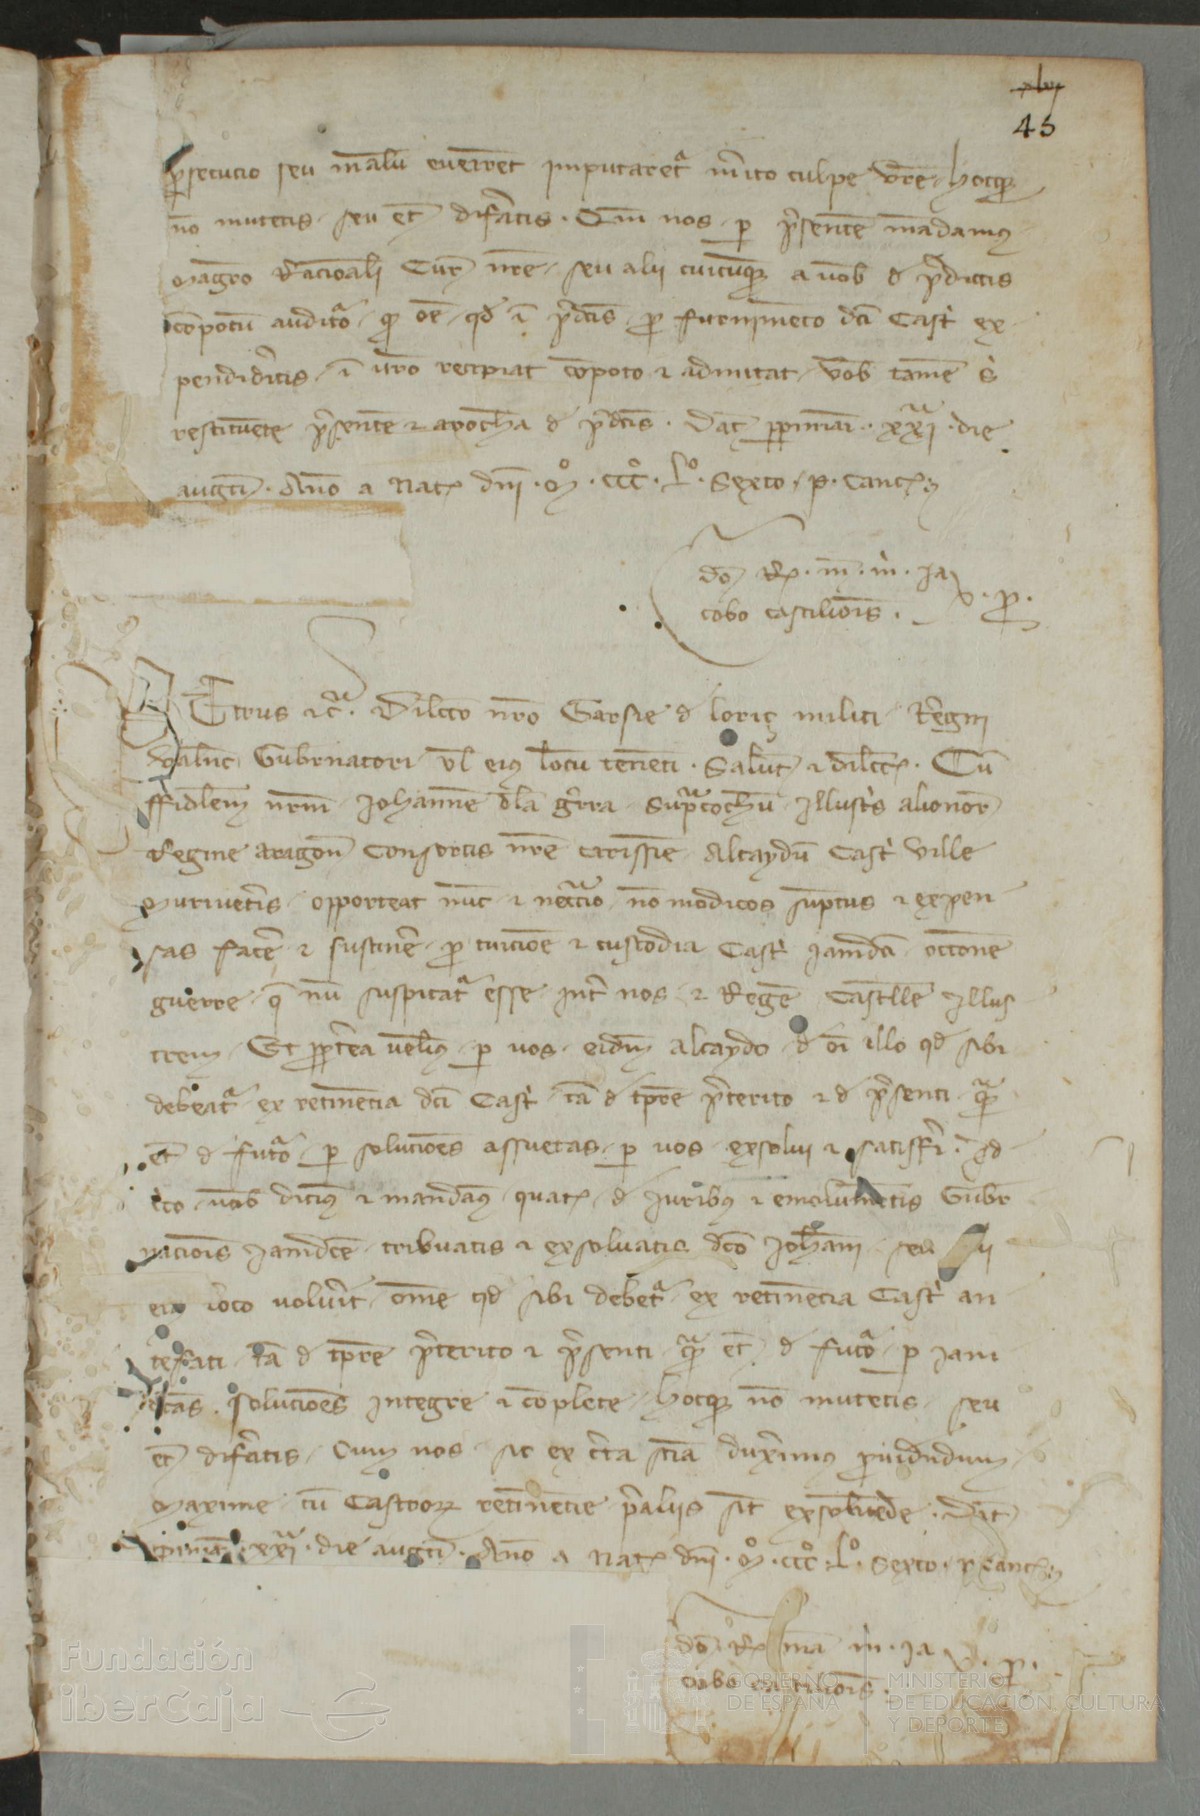 xlvj
45
psecucio seu malu eveniret imputaret mito culpe vre hocq
no mutetis seu et difatis. Cum nos p psente madamus
magro Racioali Cur nre seu alii cuicuq a vob d pdictis
copotu audituro q oe qd i pdcis p furnimeto dci Cast ex
pendiditis i vro recipiat copoto et admitat vob tame s
restituete psente et apocha d pdcis. Dat ppiniai xxi die
augti. Ano a Nat dni Mº CCCº Lº Sexto P. Canc
dns Rx m m Ja
cobo castilionis.
v. p.
Petrus etc. Dilecto nro Garsie d loriç militi Regni
Valnc Gubrnatori vl eius locu teneti. Salut et dilcc. Cu
ffidlem nrm Johanne dla grra supcochu Illustris alionor
Regine aragon Consortis nre carissie Alcaydu Cast Ville
Muriveteris opporteat nuc et necario no modicos suptus et expen
sas facere et sustinere p tuicione et custodia Cast jamdci occone
guerre q nuc suspicatur esse int nos et Rege Castelle Illus
trem. Et pterea velimus p vos eidm alcaydo d oi illo qd sibi
debeat ex retinencia dci Cast ta d tpre pterito et d psenti qm
et d futo p soluciones assuetas p vos exsolvi et satisfi. Id
eco vob dicim et mandam quat d juribus et emolumetis Gubr
nacionis jamdce tribuatis et exsolvatis dco Johani seu
eius loco voluerit ome qd sibi debet ex retinencia Cast an
tefati ta d tpre pterito et psenti qm et d futo p jam
dcas soluciones integre et coplete hocq no mutetis seu
et difatis. Cum nos sic ex cta scia duximus pvidendum
maxime cu Castror retinencie p aliis sit exsolvede. Dat
ppiniai xxi die augti. Ano a Nat dni Mº CCCº Lº Sexto P Canc
dns Rx ma m Ja
cobo castilionis.
v. p.
Fundación
iberCaja
GOBIERNO
DE ESPAÑA
MINISTERIO
DE EDUCACIÓN, CULTURA
Y DEPORTE